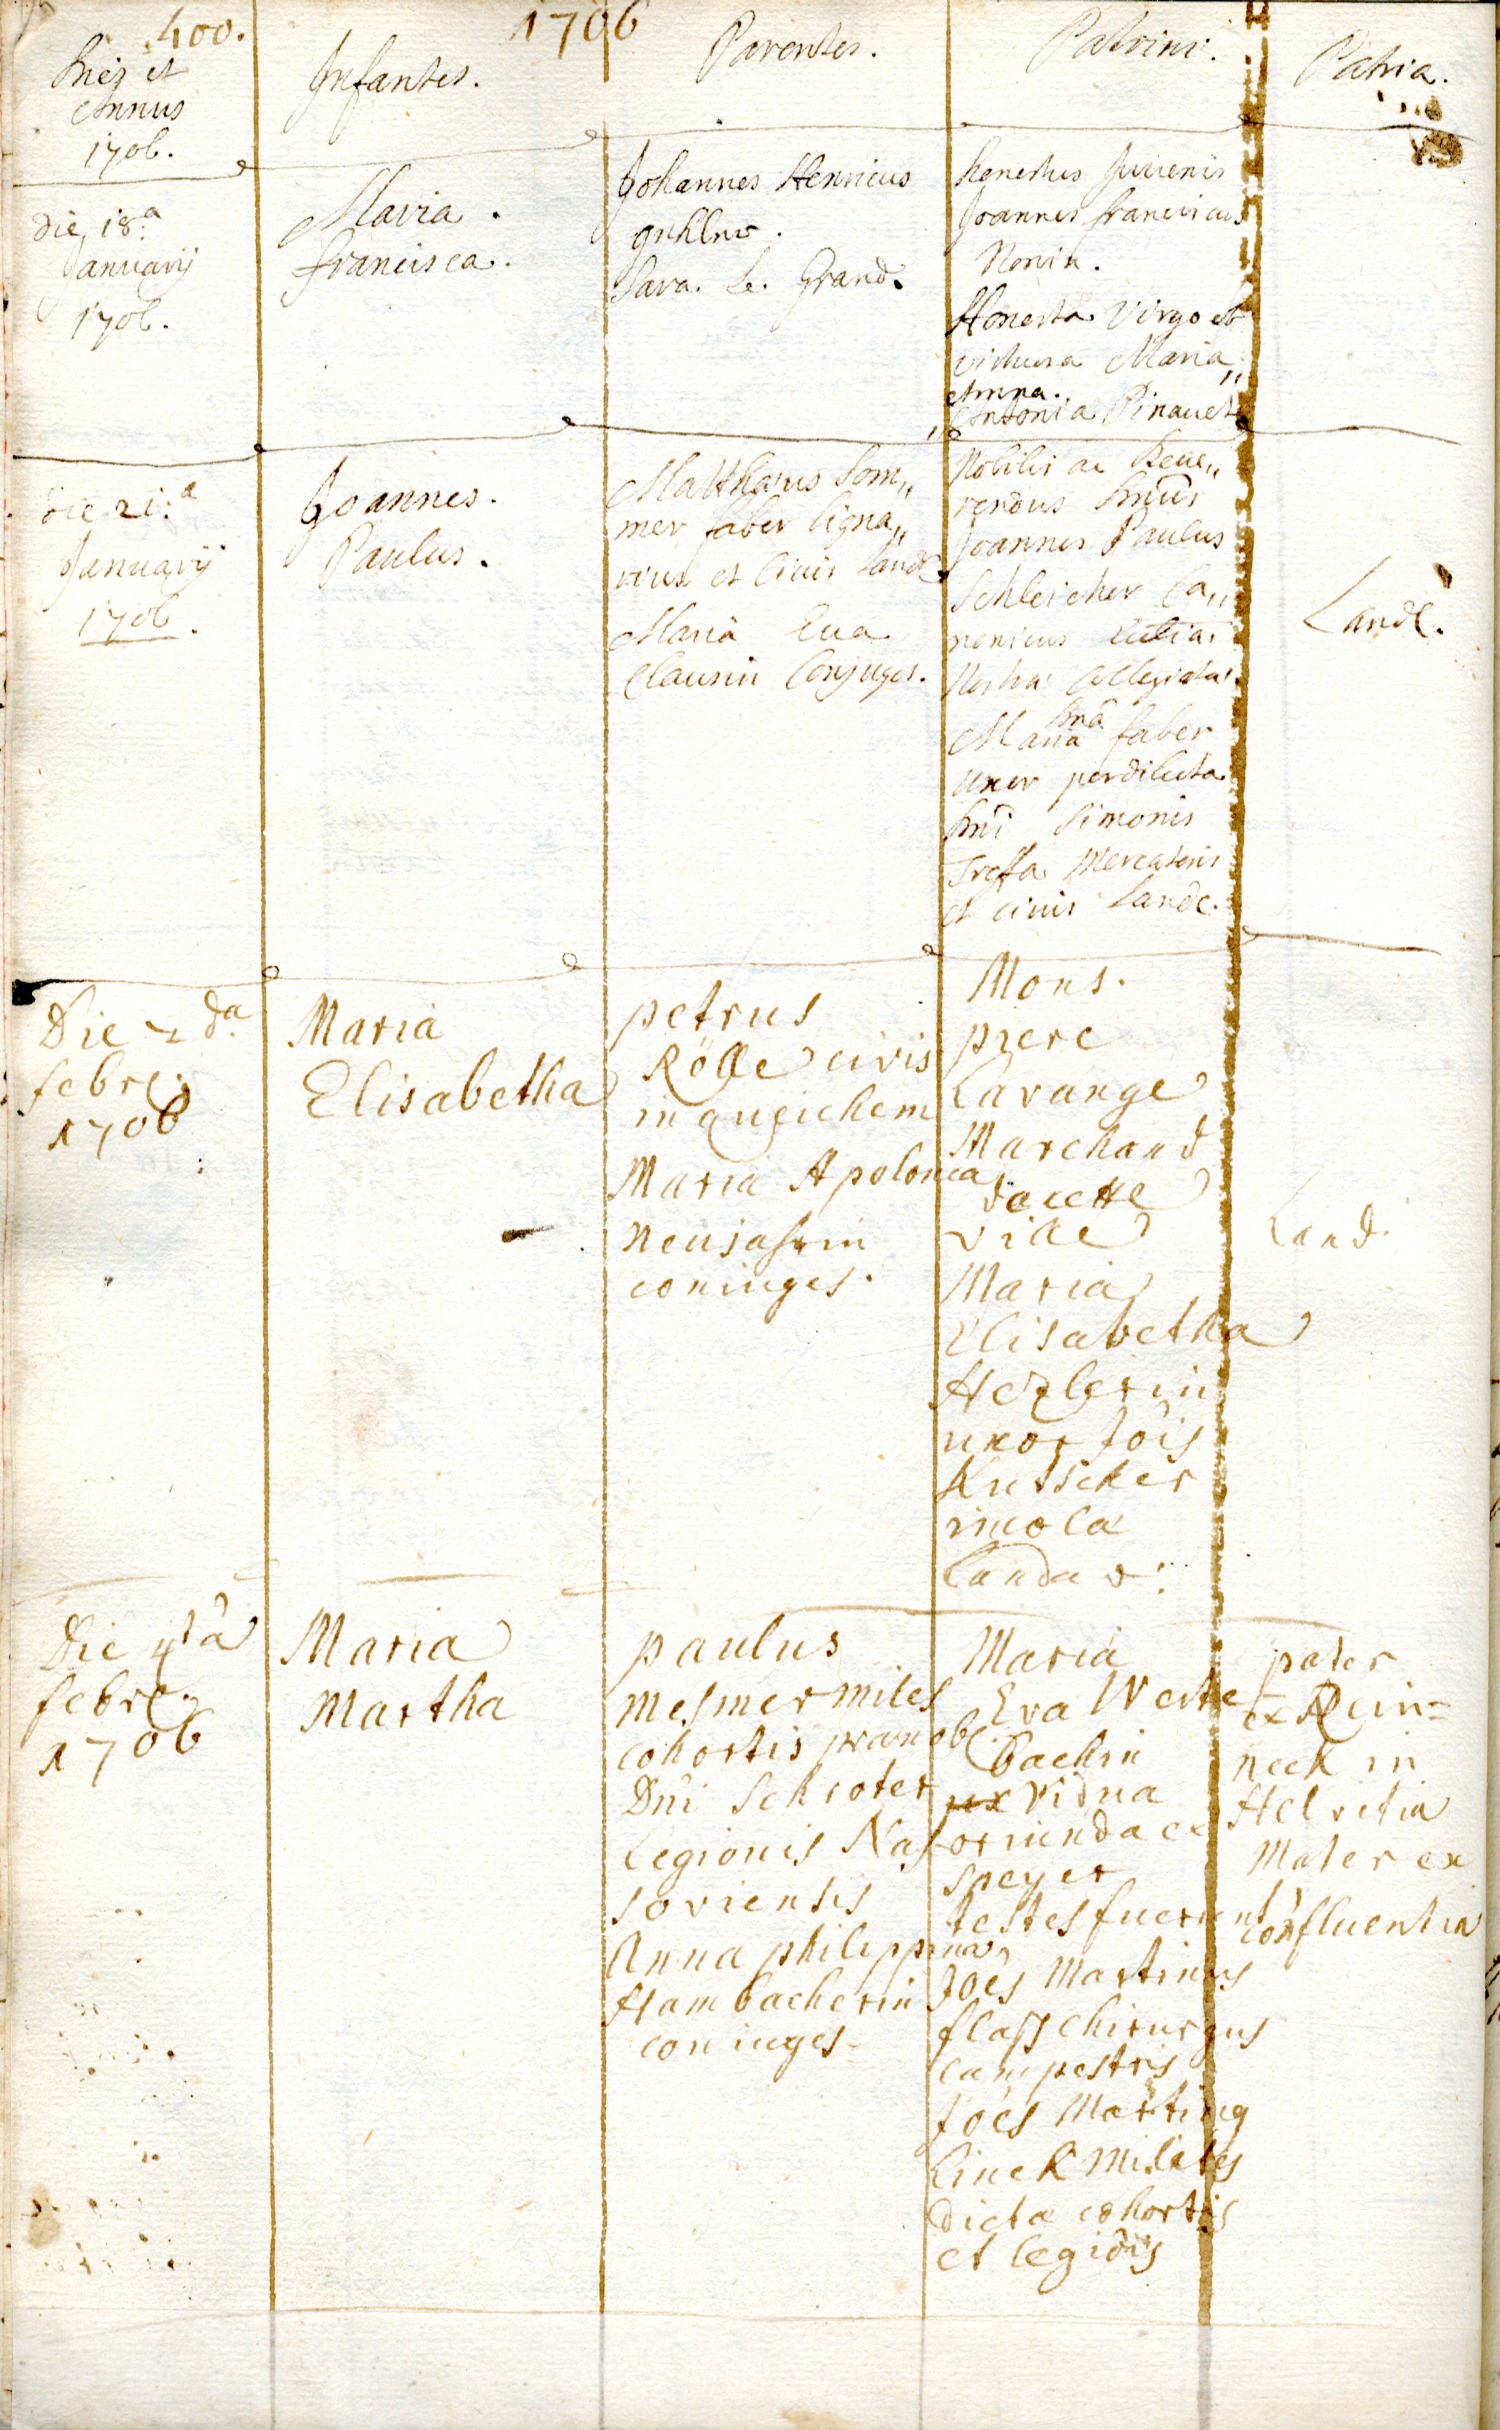 400.
1706
Dies et
Annus
1706.
Infantes.
Parentes.
Patrini.
Patria.
die 18.a
January
1706.
Maria.
francisca.
Johannes Henricus
Sara. le. Grand.
honestus Juvenis
Joannes franciscus
Nonin.
Honesta Virgo et
virtuosa Maria
Anna.
Antonia Pinauet
die 21.a
Januarÿ
1706.
Joannes.
Paulus.
Matthæus Som,,
mer faber ligna,,
rius et Ciuis Land.
Maria Eua
Clausin Conjuges.
Nobilis ac Reue,,
rendus Dnus
Joannes Paulus
Schleicher Ca,,
nonicus
Nostræ Collegiatæ.
Dnâ
Maria faber
uxor perdilecta
Dni Simonis
Treffa Mercatoris
et ciuis Landc.
Landc.
Die 2da
febre.
1706
Maria
Elisabetha
petrus
Rölle civis
in queichem
Maria Apolonia
Neujahrin
coniuges.
Mons.
piere
Lavange
Marchand
de cette
ville
Maria
Elisabetha
Hezlerin
uxor Jois
Kutscher
incola
Landav:
Land.
Die 4tâ
febre.
1706
Maria
Martha
paulus
Mesmer miles
cohortis prænobl.
Dni Schroter
Legionis Nas-
soviensis
Anna philippina
Hambacherin
coniuges-
Maria
Eva Werte
bachin
ux vidua
oriunda ex
Speyer
testes fuerunt
Joes Martinus
flass chirurgus
campestris
Joes Martinq
Linck Milites
dictæ cohortis
et legiois
pater
ex Rein=
neck in
Helvetia
Mater ex
confluentia